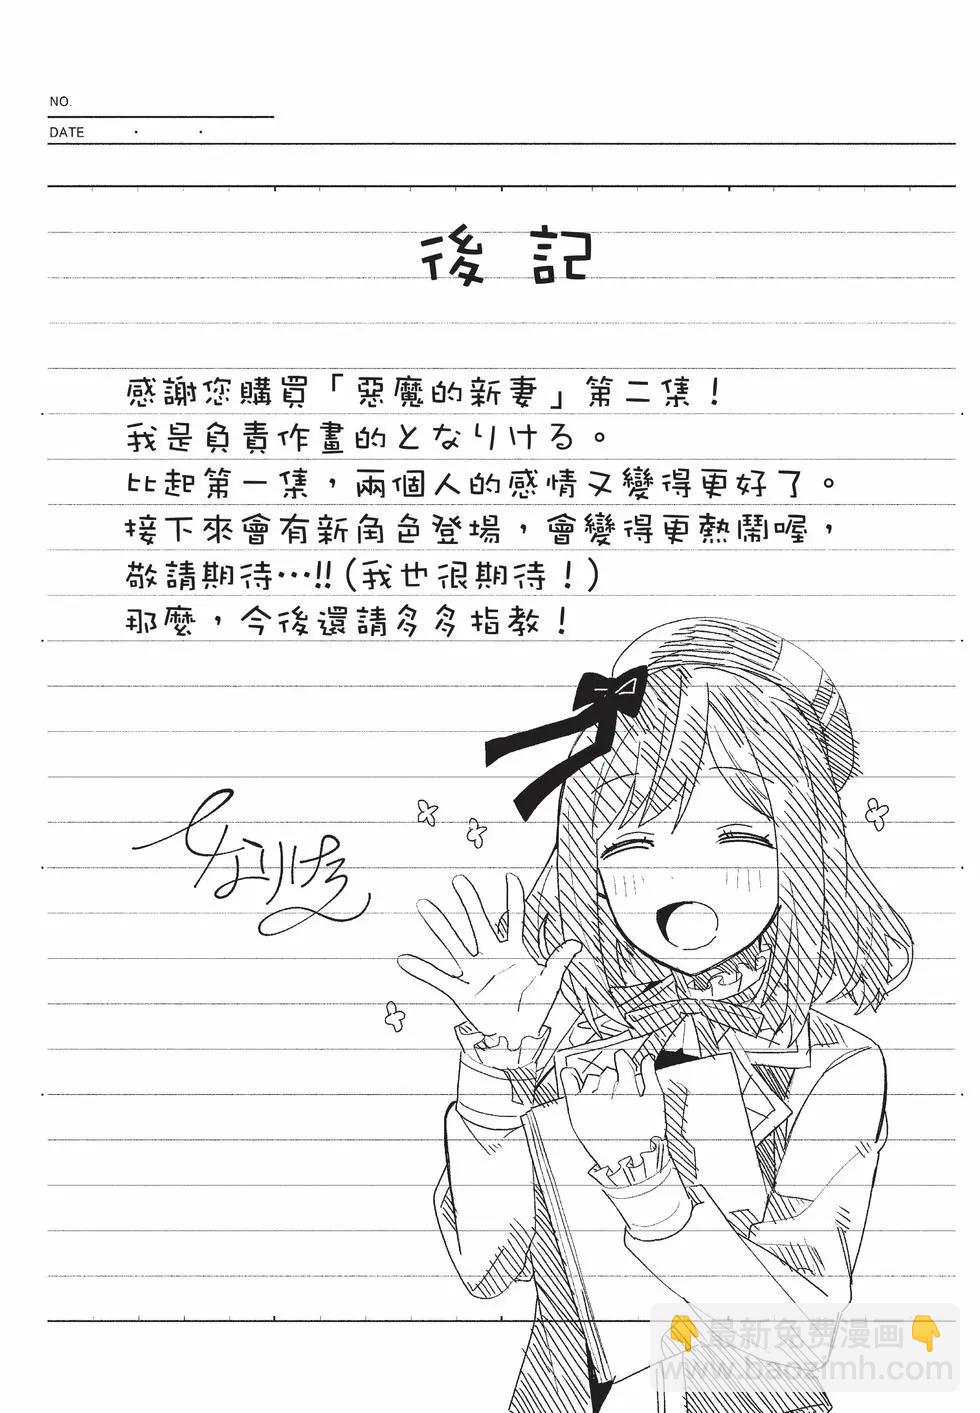 NO.
DATE ・ ・
後記
感謝您購買「惡魔的新妻」第二集！
我是負責作畫的となりける。
比起第一集，兩個人的感情又變得更好了。
接下來會有新角色登場，會變得更熱鬧喔，
敬請期待…!!(我也很期待！)
那麼，今後還請多多指教！
となりける
👇最新免费漫画👇
www.baozimh.com